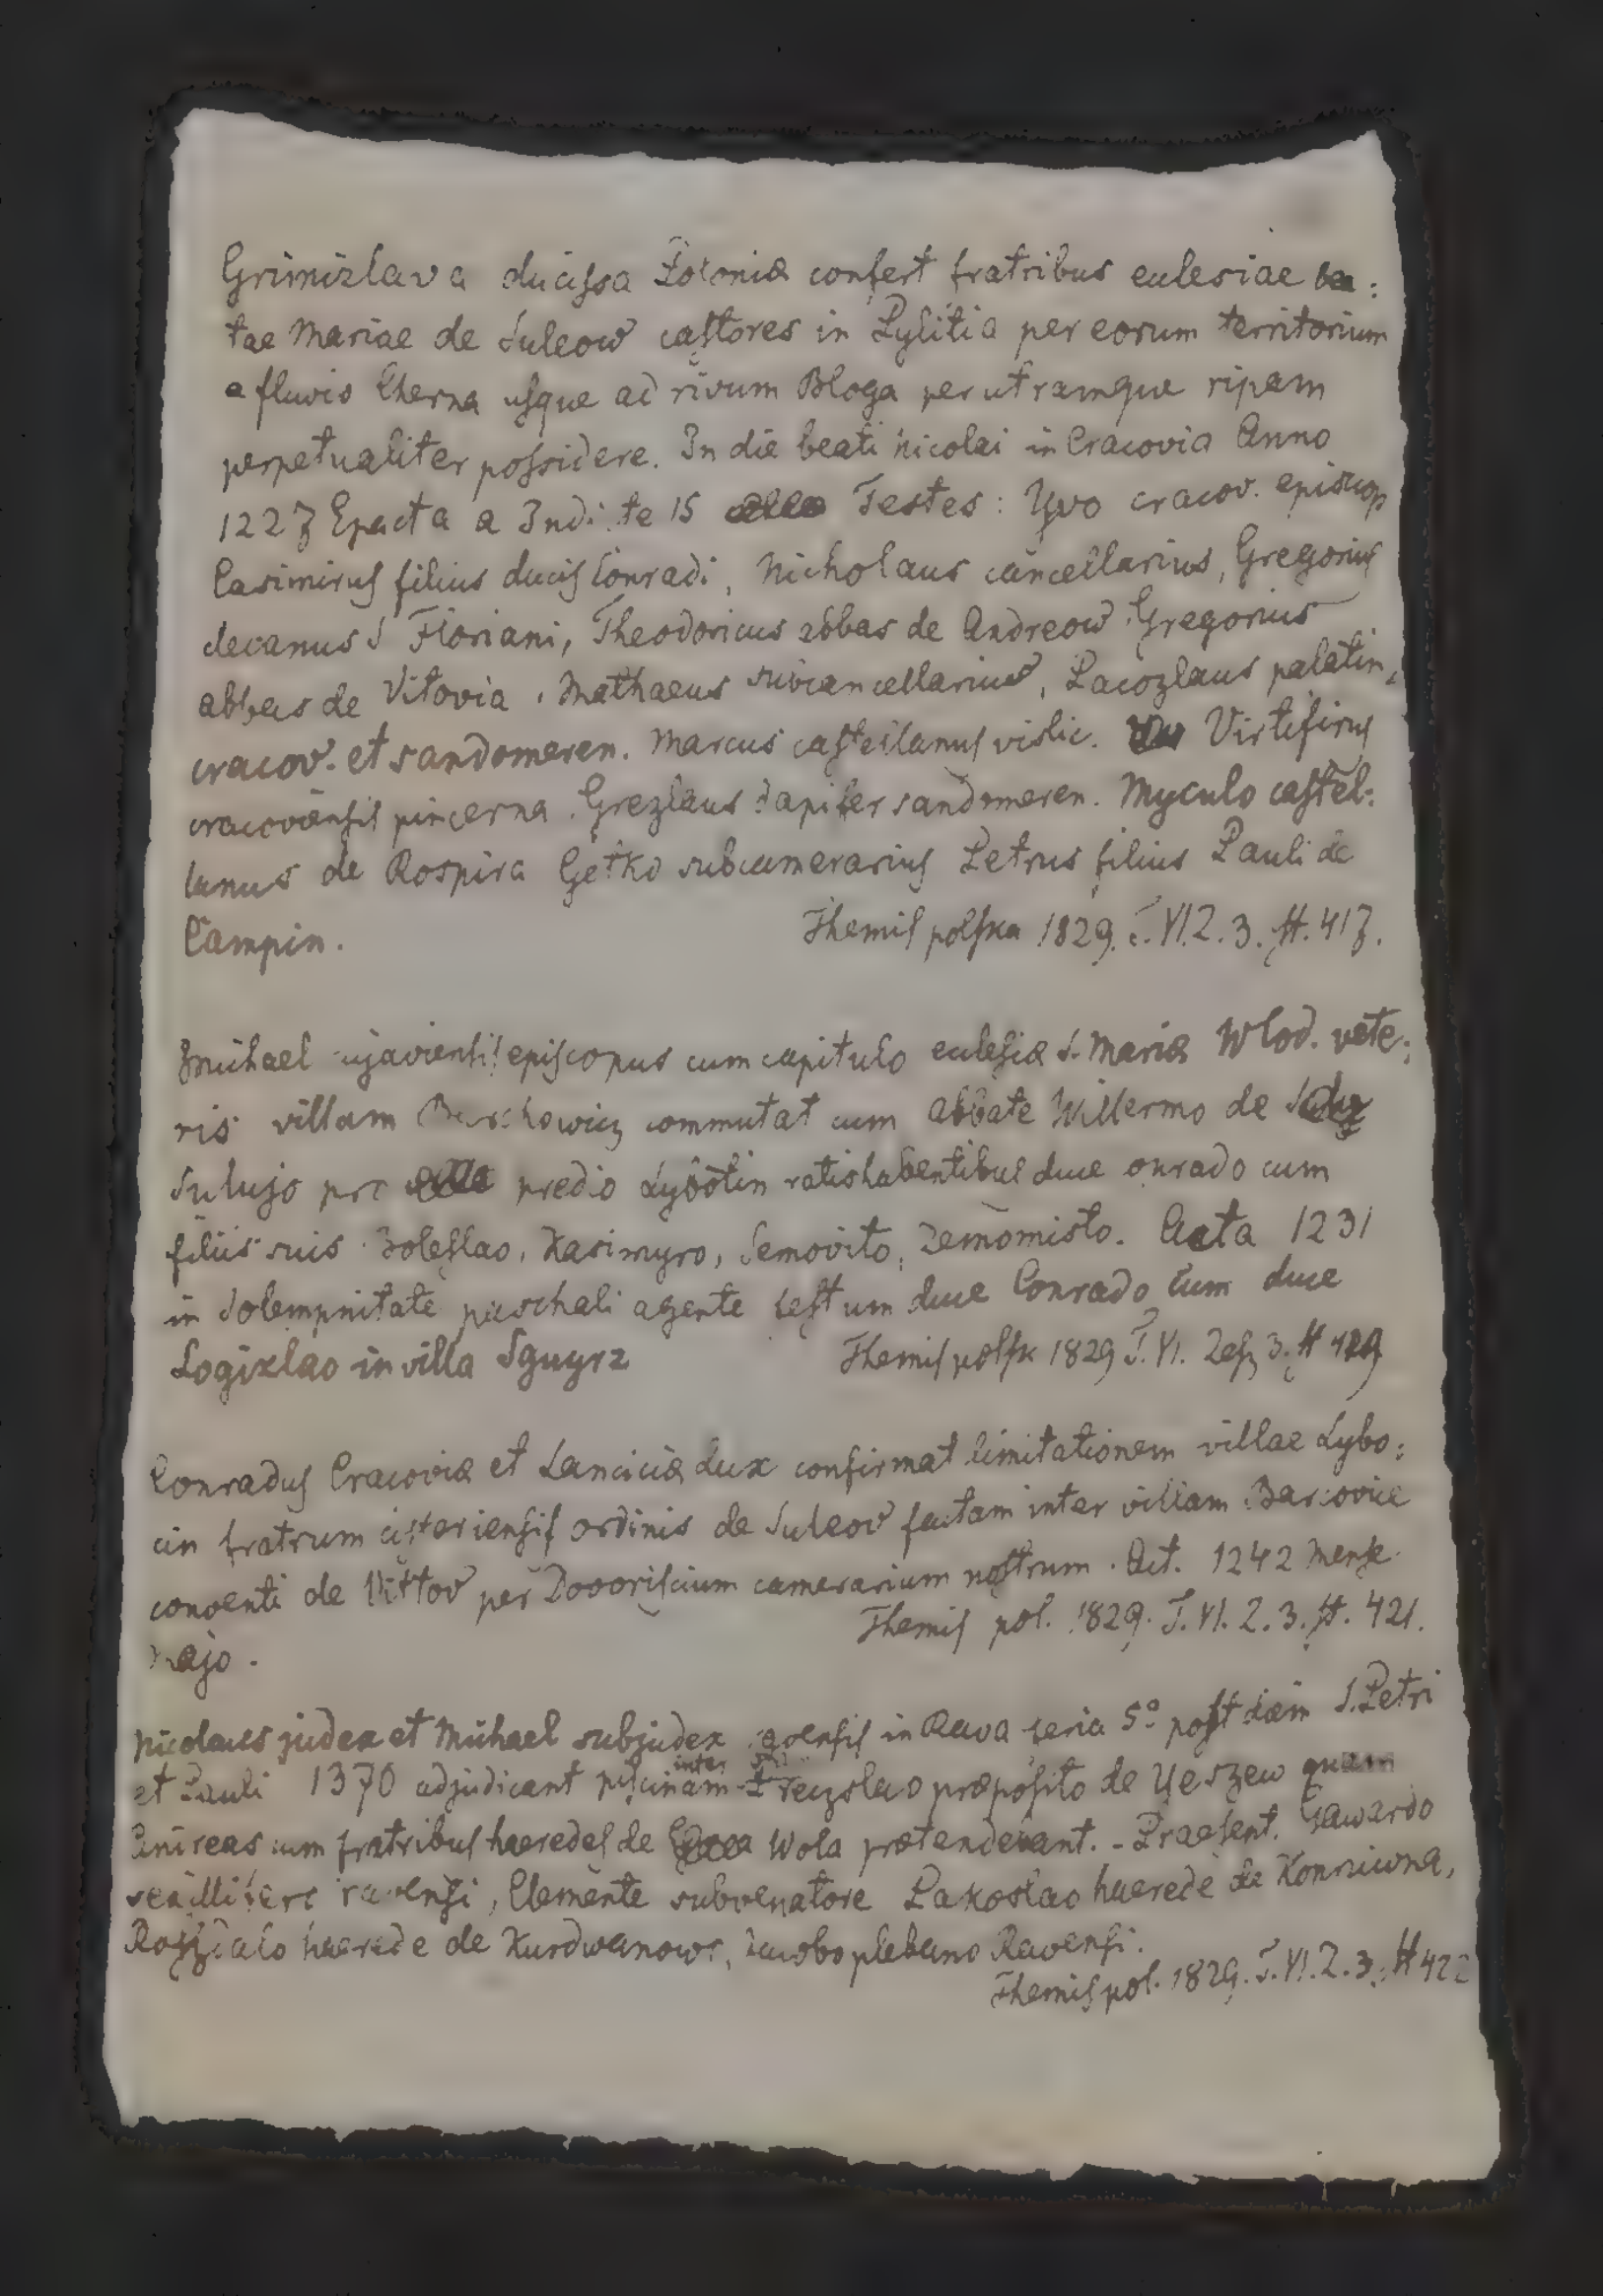 Grimizlava ducissa Poloniæ confert fratribus eclesiae bea:
tae Mariae de Suleow castores in Pylitia per eorum territorium
a fluvio Cherna usque ad rivum Bloga per utramque ripam
perpetualiter possidere. In die beati Nicolai in Cracovia Anno
1227 Epacta a Indi te 15 Testes: Yvo cracov. episcop
Casimirus filius ducis Conradi, Nicholaus cancellarius, Gregorius
decanus S Floriani, Theodoricus abbas de Andreow. Gregorius
abbas de Vitovia. Mathaeus subcancellarius, Pacozlaus palatin.
cracov. et sandomeren. Marcus castellanus vislic. Virtifirus
cracoviensis pincerna. Grezlaus dapifer sandomeren. Myculo castel:
lanus de Rospira Getko subcamerarius Petrus filius Pauli de
Campin. Themis polska 1829. T. VI. Z. 3. st. 417.
Michael cujaviensis episcopus cum capitulo eclesiæ S. Mariæ Wlod. vete:
ris villam commutat cum abbate Willermo de
Sulujo pro predio Lybotin ratishabentibus duce onrado cum
filiis suis Boleslao, Kasimyro, Semovito, Zemomisto. Acta 1231
in Solempnitate paschali agente festum duce Conrado cum duce
Logixlao in villa Sguyrz Themis polsk 1829 T. VI. Zesz 3. st
Conradus Cracoviæ et Lanciciæ dux confirmat limitationem villae Lybo:
cin fratrum cisteriensis ordinis de Suleow factam inter villam Barcovice
conventi de Vittov per camerarium nostrum. Act. 1242 mense
majo. Themis pol. 1829. T. VI. Z. 3. st. 421.
Nicolaus judex et Michael subjudex in Rava feria 5º post diem S. Petri
et Pauli 1370 adjudicant piscinam inter preposito de Yeszew quam
Andreas cum fratribus haeredes de Wola prætendebant. - Praesent. Gawardo
ravensi, Clemente subvenatore Pakoslao haerede de
haerede de Kurdwanowo, Jacobo plebano Ravensi.
Themis pol. 1829. T. VI. Z. 3. st